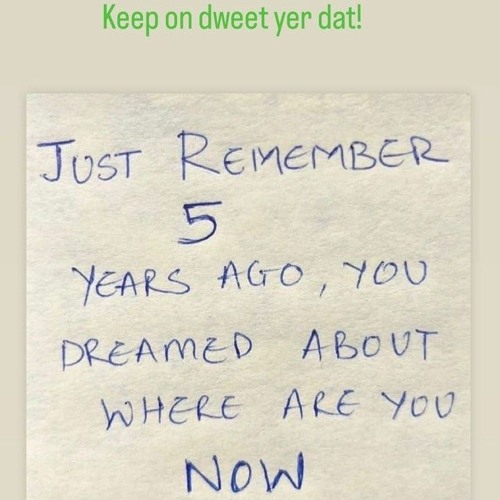 Keep on dweet yer dat!
JUST REMEMBER
5
YEARS AGO, YOU
DREAMED ABOUT
WHERE ARE YOU
NOW